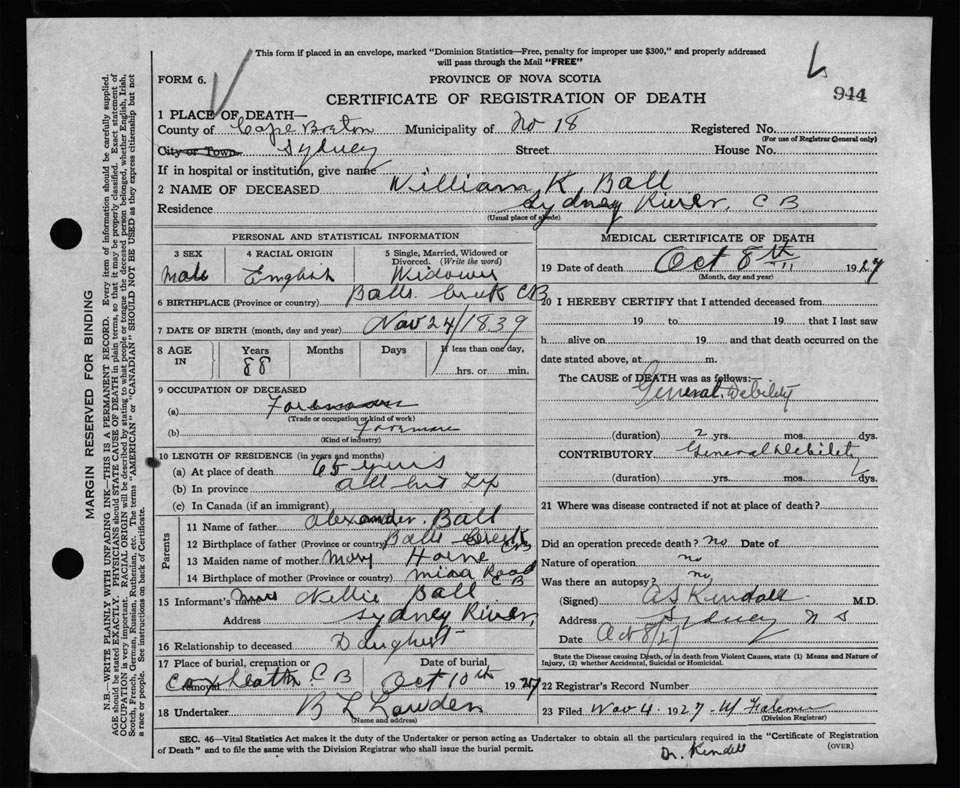 This form if placed in an envelope, marked "Dominion Statistics—Free, penalty for improper use $300," and properly addressed
will pass through the Mail "FREE"
FORM 6.
PROVINCE OF NOVA SCOTIA
944
CERTIFICATE OF REGISTRATION OF DEATH
1 PLACE OF DEATH—
County of Cape Breton Municipality of No 18 Registered No.
(For use of Registrar General only)
City or Town Sydney Street House No.
If in hospital or institution, give name
2 NAME OF DECEASED William K. Ball
Residence Sydney River, C B
(Usual place of abode)
PERSONAL AND STATISTICAL INFORMATION
3 SEX 4 RACIAL ORIGIN 5 Single, Married, Widowed or
Divorced. (Write the word)
Male English Widower
6 BIRTHPLACE (Province or country) Balls Creek CB
7 DATE OF BIRTH (month, day and year) Nov 24/1839
8 AGE IN Years Months Days If less than one day,
88 hrs. or min.
9 OCCUPATION OF DECEASED
(a)
(Trade or occupation or kind of work)
(b)
(Kind of industry)
10 LENGTH OF RESIDENCE (in years and months)
(a) At place of death 65 years
(b) In province all his life
(c) In Canada (if an immigrant)
Parents
11 Name of father Alexander Ball
12 Birthplace of father (Province or country) Balls Creek CB
13 Maiden name of mother Mary Horne
14 Birthplace of mother (Province or country) Mira Road C B
15 Informant's name Nellie Ball
Address Sydney River,
16 Relationship to deceased Daughter
17 Place of burial, cremation or removal Date of burial
Coxheath C B Oct 10th 1927
18 Undertaker B L Lowden
(Name and address)
MEDICAL CERTIFICATE OF DEATH
19 Date of death Oct 8th 1927
(Month, day and year)
20 I HEREBY CERTIFY that I attended deceased from
19 to 19 that I last saw
h alive on 19 and that death occurred on the
date stated above, at m.
The CAUSE of DEATH was as follows:—
General Debility
(duration) 2 yrs. mos. dys.
CONTRIBUTORY General Debility
(duration) yrs. mos. dys.
21 Where was disease contracted if not at place of death?
Did an operation precede death? no Date of
Nature of operation no
Was there an autopsy? no
(Signed) A S Kendall M.D.
Address Sydney N S
Date Oct 8/27
State the Disease causing Death, or in death from Violent Causes, state (1) Means and Nature of
Injury, (2) whether Accidental, Suicidal or Homicidal.
22 Registrar's Record Number
23 Filed Nov 4 1927
(Division Registrar)
SEC. 46—Vital Statistics Act makes it the duty of the Undertaker or person acting as Undertaker to obtain all the particulars required in the "Certificate of Registration
of Death" and to file the same with the Division Registrar who shall issue the burial permit.
(OVER)
Dr. Kendall
MARGIN RESERVED FOR BINDING
N.B.—WRITE PLAINLY WITH UNFADING INK—THIS IS A PERMANENT RECORD. Every item of information should be carefully supplied.
AGE should be stated EXACTLY. PHYSICIANS should STATE CAUSE OF DEATH in plain terms, so that it may be properly classified. Exact statement of
OCCUPATION is very important. RACIAL ORIGIN will be described by stating to what people or tongue the deceased person belonged, whether English, Irish,
Scotch, French, German, Russian, Ruthenian, etc. The terms "AMERICAN" or "CANADIAN" SHOULD NOT BE USED as they express citizenship but not
a race or people. See instructions on back of Certificate.